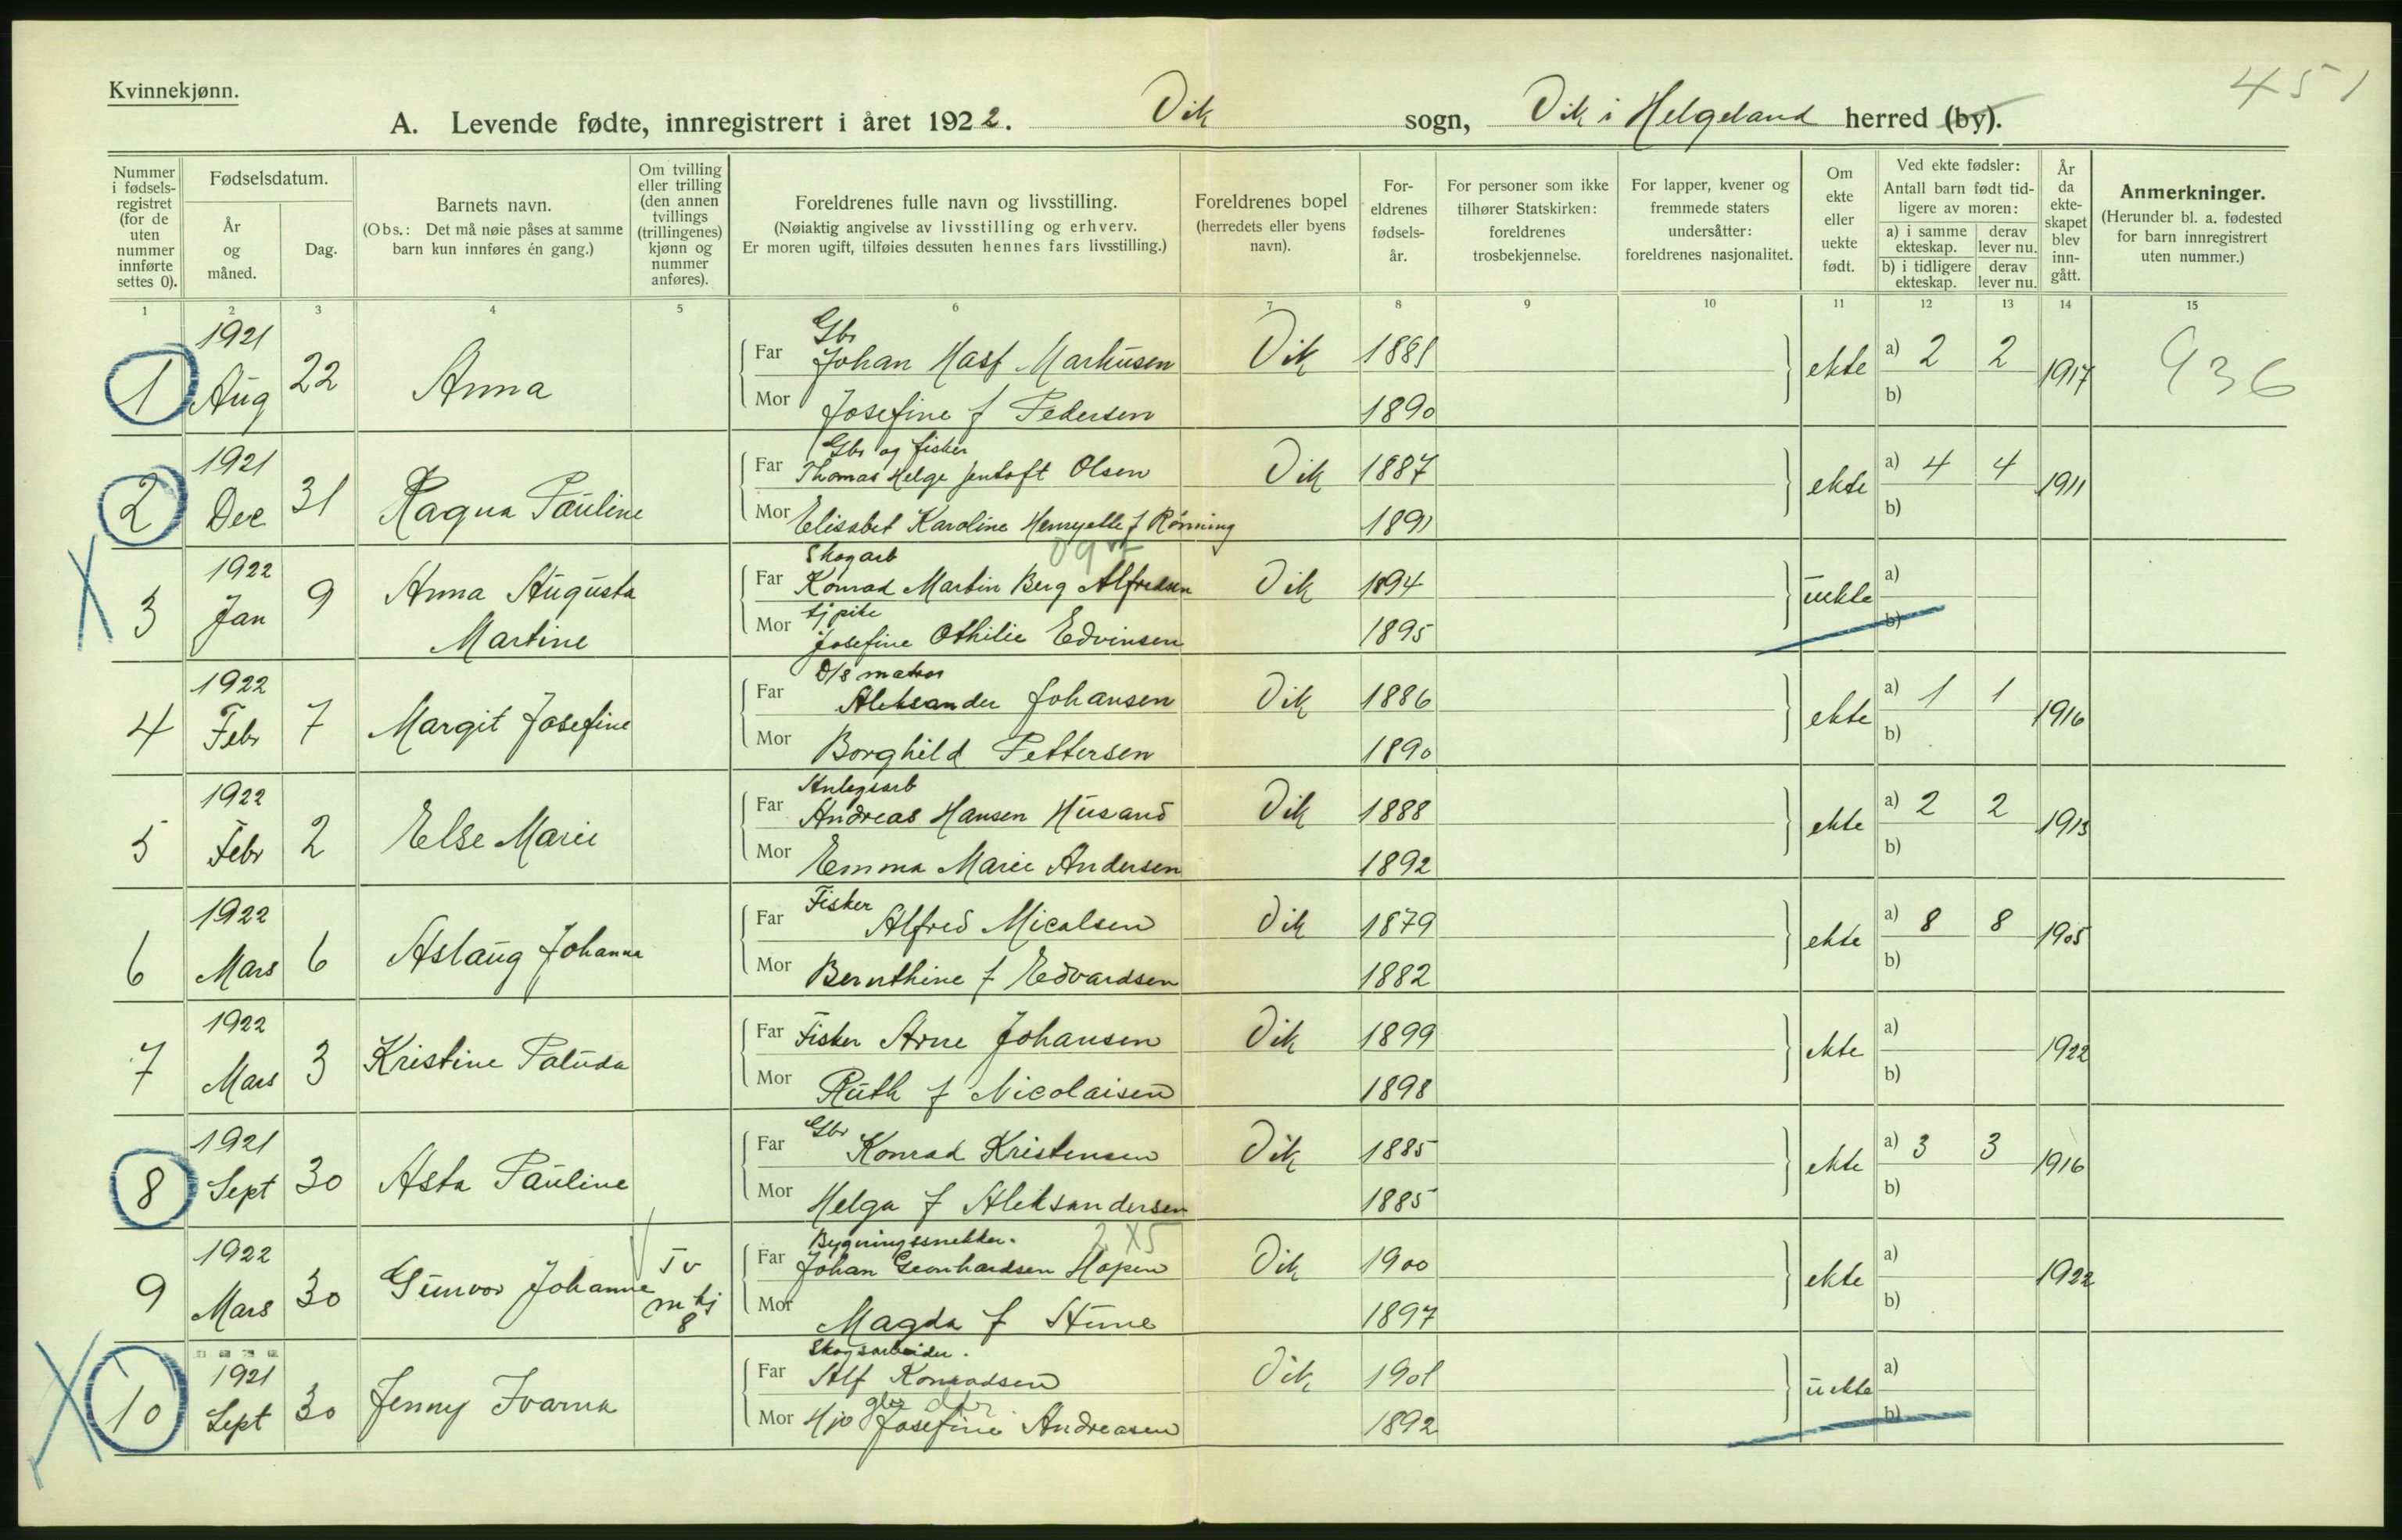 Kvinnekjønn.
451
A. Levende fødte, innregistrert i året 1922. Vik sogn, Vik i Helgeland herred (by).
Nummer i fødsels-registret (for de uten nummer innførte settes 0).
Fødselsdatum.
År og måned.
Dag.
Barnets navn.
(Obs.: Det må nøie påses at samme barn kun innføres én gang.)
Om tvilling eller trilling (den annen tvillings (trillingenes) kjønn og nummer anføres).
Foreldrenes fulle navn og livsstilling.
(Nøiaktig angivelse av livsstilling og erhverv.
Er moren ugift, tilføies dessuten hennes fars livsstilling.)
Foreldrenes bopel
(herredets eller byens navn).
For-eldrenes fødsels-år.
For personer som ikke tilhører Statskirken: foreldrenes trosbekjennelse.
For lapper, kvener og fremmede staters undersåtter: foreldrenes nasjonalitet.
Om ekte eller uekte født.
Ved ekte fødsler:
Antall barn født tid-ligere av moren:
a) i samme ekteskap. derav lever nu.
b) i tidligere ekteskap. derav lever nu.
År da ekte-skapet blev inn-gått.
Anmerkninger.
(Herunder bl. a. fødested for barn innregistrert uten nummer.)
1 2 3 4 5 6 7 8 9 10 11 12 13 14 15
1 1921 Aug 22 Anna
Gbr
Far Johan Hast Markusen Vik 1881 ekte a) 2 2 1917 936
Mor Josefine f Pedersen 1890 b)
2 1921 Dec 31 Ragna Pauline
Gbr og fisker
Far Thomas Helge Jentoft Olsen Vik 1887 ekte a) 4 4 1911
Mor Elisabet Karoline Henryette f Rønning 1891 b)
3 1922 Jan 9 Anna Augusta Martine
Skogarb
Far Konrad Martin Berg Alfredsen Vik 1894 uekte a)
tjpike
Mor Josefine Othilie Edvinsen 1895 b)
4 1922 Febr 7 Margit Josefine
D/s matros
Far Aleksander Johansen Vik 1886 ekte a) 1 1 1916
Mor Borghild Pettersen 1890 b)
5 1922 Febr 2 Else Marie
Anlegsarb
Far Andreas Hansen Husand Vik 1888 ekte a) 2 2 1913
Mor Emma Marie Andersen 1892 b)
6 1922 Mars 6 Aslaug Johanna
Fisker
Far Alfred Micalsen Vik 1879 ekte a) 8 8 1905
Mor Bernthine f Edvardsen 1882 b)
7 1922 Mars 3 Kristine Paluda
Far Fisker Arne Johansen Vik 1899 ekte a) 1922
Mor Ruth f Nicolaisen 1898 b)
8 1921 Sept 30 Asta Pauline
Gbr
Far Konrad Kristensen Vik 1885 ekte a) 3 3 1916
Mor Helga f Aleksandersen 1885 b)
9 1922 Mars 30 Gunvor Johanne Tv m kj 8
Bygningssnekker. 2 X 5
Far Johan Leonhardsen Hopen Vik 1900 ekte a) 1922
Mor Magda f Stene 1897 b)
10 1921 Sept 30 Jenny Ivarna
Skogsarbeider.
Far Alf Konradsen Vik 1901 uekte a)
Mor Hjo Josefine Andreasen 1892 b)